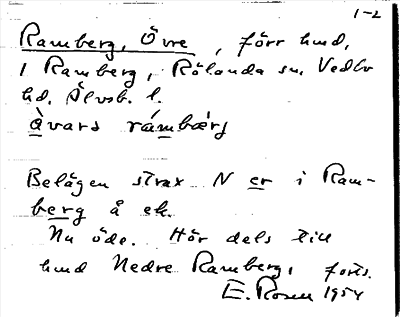 1-2
Ramberg, Övre, förr hmd,
1 Ramberg, Rölanda sn. Vedbo
hd. Älvsb. l.
å̀vars rámbæ̀rj
Belägen strax N er i Ram-
berg å ek.
Nu öde. Hör dels till
hmd Nedre Ramberg, forts.
E. Rosen 1954